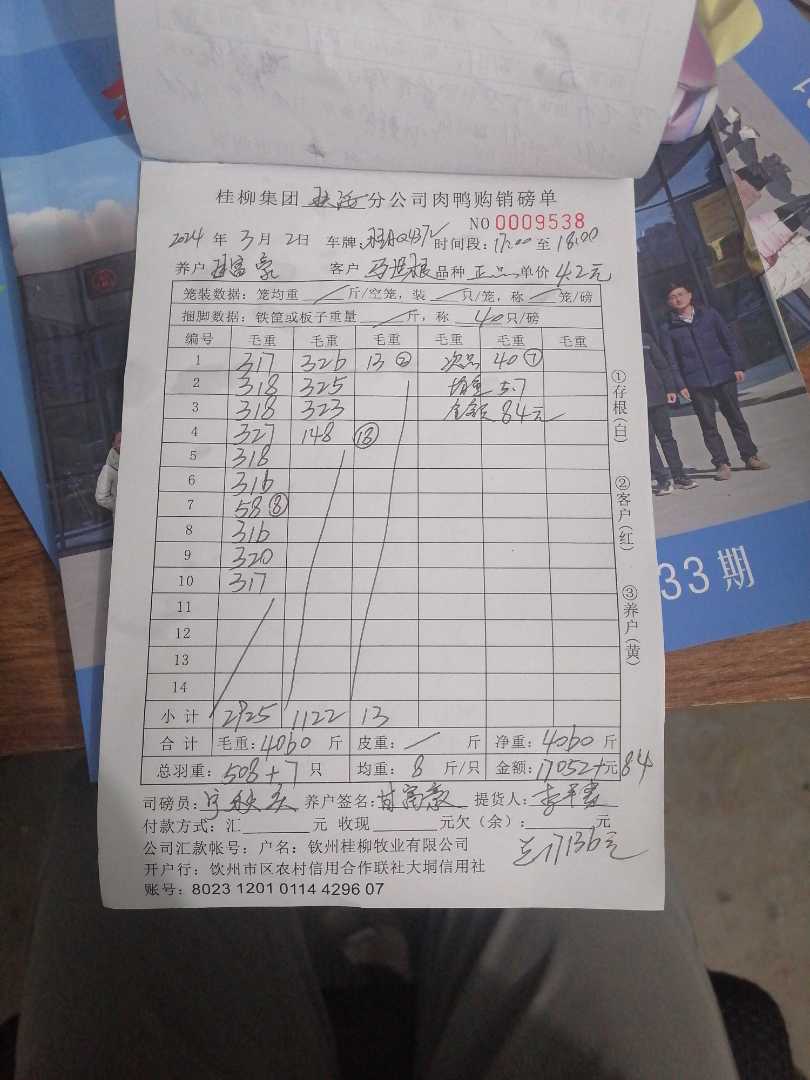 桂柳集团 分公司肉鸭购销磅单
NO 0009538
2024 年 3 月 2 日 车牌: 时间段: 17:00 至 18:00
养户 客户 品种 正品 单价 4.2元
笼装数据: 笼均重 / 斤/空笼, 装 / 只/笼, 称 / 笼/磅
捆脚数据: 铁筐或板子重量 / 斤, 称 40 只/磅
编号 毛重 毛重 毛重 毛重 毛重 毛重
1 317 326 13② 次品 40⑦
2 318 325 均重 5.7
3 318 323 金额 84元
4 327 148 ⑱
5 318
6 316
7 58⑧
8 316
9 320
10 317
11
12
13
14
小计 2925 1122 13
合计 毛重: 4060 斤 皮重: / 斤 净重: 4060 斤
总羽重: 508+7 只 均重: 8 斤/只 金额: 17052+元84
司磅员: 养户签名: 甘富豪 提货人:
付款方式: 汇 元 收现 元欠(余): 元
公司汇款帐号: 户名: 钦州桂柳牧业有限公司
17136元
开户行: 钦州市区农村信用合作联社大垌信用社
账号: 8023 1201 0114 4296 07
①存根(白)
②客户(红)
③养户(黄)
33期